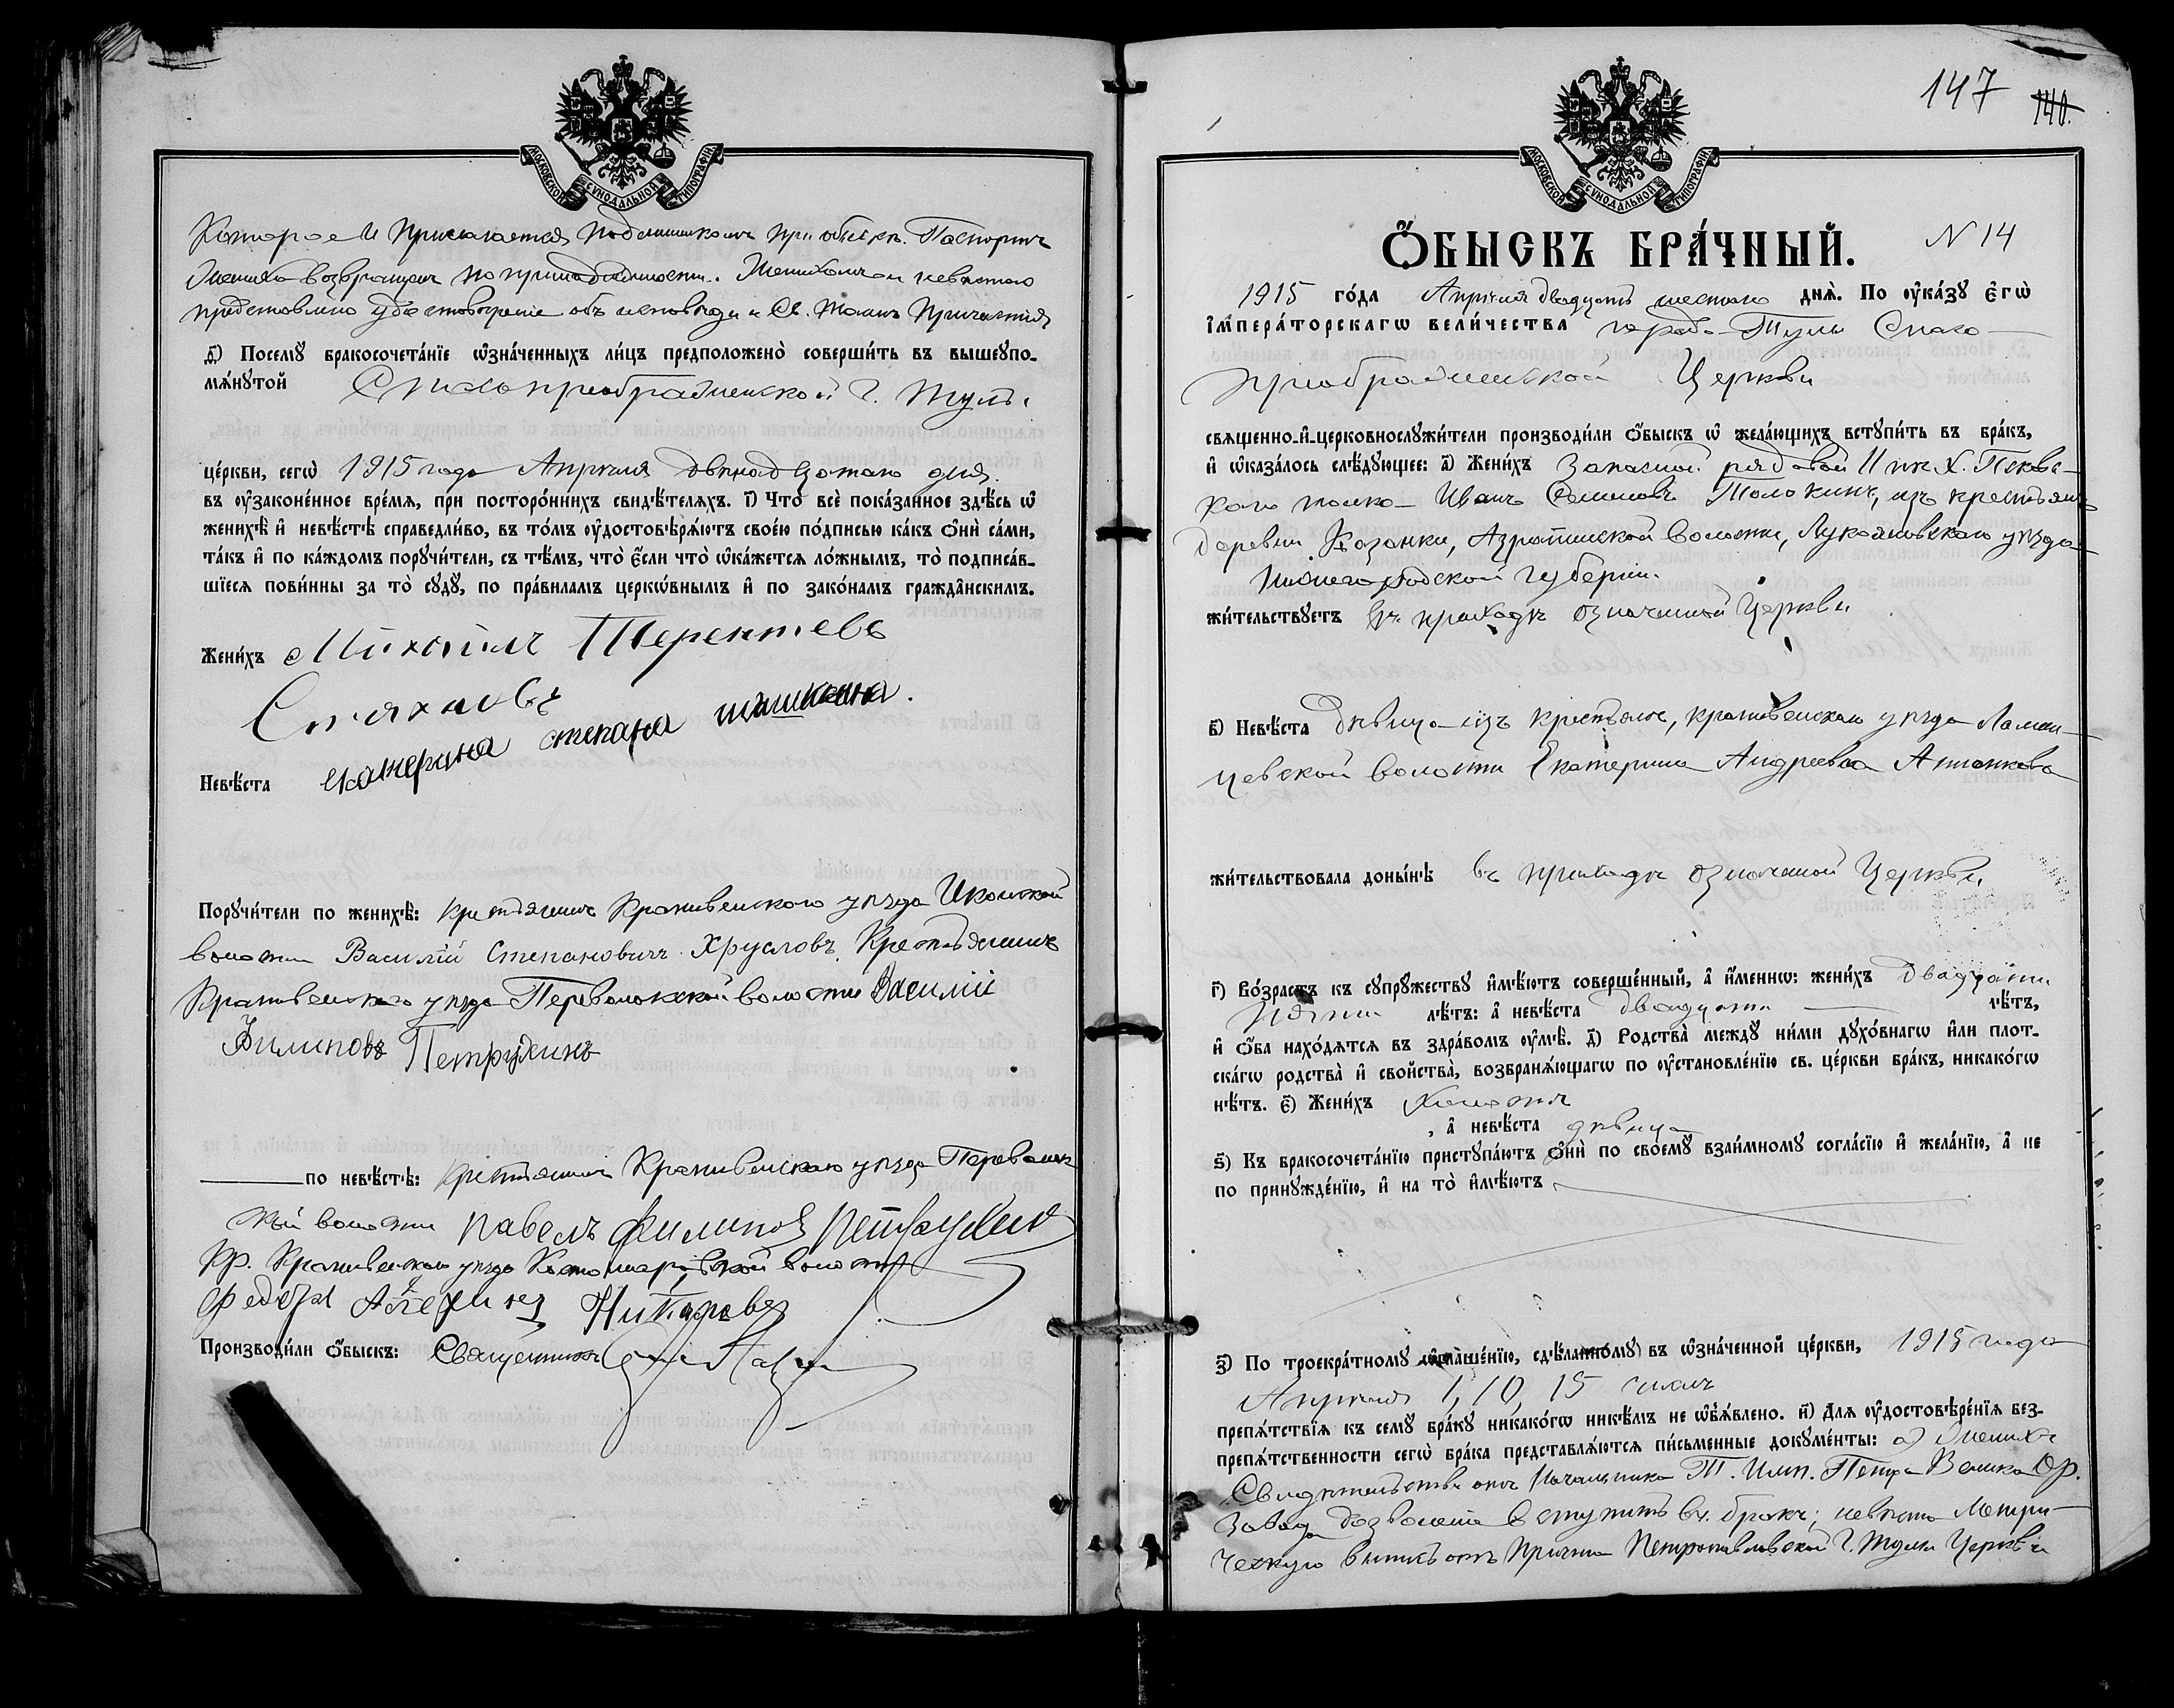 МОСКОВСКОЙ СѴНОДАЛЬНОЙ ТИПОГРАФІИ
Которое и прилагается подлинникомъ при обыскѣ. Паспортъ
жениха возвращенъ по принадлежности. Женихомъ и невѣстою
представлено удостовѣреніе объ исповѣди и Св. Таинъ Причастія
д҃) Посемꙋ̀ бракосочета́нїе ѡ҆зна́ченныхъ ли́цъ предположено̀ соверши́ть въ вышеупо-
мѧ́нꙋтой Спасопреображенской г. Тулы
це́ркви, сегѡ̀ 1915 года Апрѣля двѣнадцатаго дня.
въ ᲂу҆зако́ненное вре́мѧ, при посторо́ннихъ свидѣ́телѧхъ. і҃) Что̀ всѐ пока́занное здѣ́сь ѡ҆
женихѣ̀ и҆ невѣ́стѣ справедли́во, въ то́мъ ᲂу҆достовѣрѧ́ютъ свое́ю по́дписью ка́къ ѻ҆нѝ са́ми,
та́къ и҆ по ка́ждомъ порꙋчи́тели, съ тѣ́мъ, что̀ є҆́сли что̀ ѡ҆ка́жетсѧ ло́жнымъ, то̀ подписа́в-
шїесѧ пови́нны за то̀ сꙋдꙋ̀, по пра́виламъ церкѡ́внымъ и҆ по зако́намъ гражда́нскимъ.
Жени́хъ Михаилъ Терентьевъ
Стаханов
Невѣ́ста екатерина степана
Порꙋчи́тели по женихѣ̀: крестьянинъ Крапивенскаго уѣзда Иконской
волости Василій Степановичъ Хрусловъ. Крестьянинъ
Крапивенскаго уѣзда Переволокской волости Василій
Филиповъ Петрухинъ
по невѣ́стѣ: крестьянинъ Крапивенскаго уѣзда Переволок
ской волости павелъ филипов петрухин
Кр. Крапивенскаго уѣзда Костомаровской волости
федоръ
Производи́ли ѻ҆́быскъ: Священникъ
147 140.
МОСКОВСКОЙ СѴНОДАЛЬНОЙ ТИПОГРАФІИ
Ѻ҆́БЫСКЪ БРА́ЧНЫЙ. N 14
1915 го́да Апрѣля двадцать шестаго днѧ̀. По ᲂу҆ка́зꙋ є҆гѡ̀
і҆мпера́торскагѡ вели́чества города Тулы Спасо-
преображенской Церкви
свѧщенно-и҆-церковнослꙋжи́тели производи́ли ѻ҆́быскъ ѡ҆ жела́ющихъ встꙋпи́ть въ бра́къ,
и҆ ѡ҆каза́лось слѣ́дꙋющее: а҃) Жени́хъ Запасной рядовой 11 пѣх. Псков-
скаго полка Иванъ Семеновъ Толокинъ, изъ крестьянъ
деревни Казанки, Азрапинской волости, Лукояновскаго уѣзда
Нижегородской губерніи.
жи́тельствꙋетъ въ приходѣ означенной Церкви
в҃) Невѣ́ста дѣвица изъ крестьянъ, крапивенскаго уѣзда Ломин-
цевской волости Екатерина Андреева Апонкова
жи́тельствовала доны́нѣ въ приходѣ означенной Церкви
г҃) Во́зрастъ къ сꙋпрꙋ́жествꙋ и҆мѣ́ютъ соверше́нный, а҆ и҆́меннѡ: жени́хъ двадцати
пяти лѣ́тъ: а҆ невѣ́ста двадцати лѣ́тъ,
и҆ ѻ҆́ба нахо́дѧтсѧ въ здра́вомъ ᲂу҆мѣ̀. д҃) Родства̀ междꙋ ни́ми дꙋхо́внагѡ и҆ли плот-
ска́гѡ родства̀ и҆ сво́йства̀, возбранѧ́ющагѡ по ᲂу҆становле́нїю св. це́ркви бра́къ, никако́гѡ
нѣ́тъ. є҃) Жени́хъ холостъ
, а҆ невѣ́ста дѣвица
ѕ҃) Къ бракосочета́нїю пристꙋпа́ютъ ѻ҆нѝ по своемꙋ̀ взаи́мномꙋ согла́сїю и҆ жела́нїю, а҆ не
по принꙋжде́нїю, и҆ на то̀ и҆мѣ́ютъ
з҃) По троекра́тномꙋ ѡ҆глаше́нїю, сдѣ́ланномꙋ въ ѡ҆зна́ченной це́ркви, 1915 года
Апрѣля 1, 10, 15 числъ
препѧ́тствїѧ къ семꙋ̀ бра́кꙋ никако́гѡ никѣ́мъ не ѡ҆б̾ѧ́влено. и҃) Длѧ ᲂу҆достовѣре́нїѧ без-
препѧ́тственности сегѡ̀ бра́ка представлѧ́ютсѧ пи́сьменные докꙋме́нты: а) жениха
Свидѣтельство отъ Начальника Т. Имп. Петра Велика Ор.
Завода дозволеніе вступить въ бракъ; невѣста Метри-
ческую выпись отъ Причта Петропавловской г. Тулы Церкви